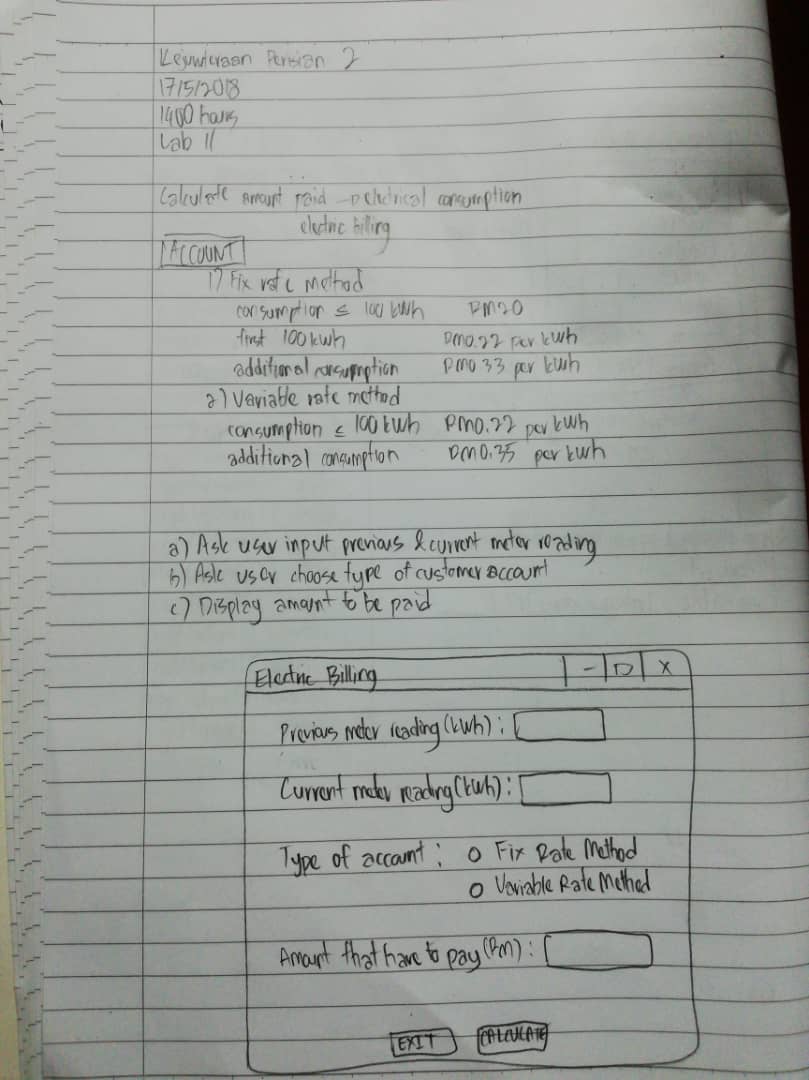 Kejuruteraan Perisian 2
17/5/2018
1400 hours
Lab 11
Calculate amount paid → electrical consumption
electric billing
ACCOUNT
1) Fix rate method
consumption ≤ 100 kwh RM20
first 100 kwh RM0.22 per kwh
additional consumption RM0.33 per kwh
2) Variable rate method
consumption ≤ 100 kwh RM0.22 per kwh
additional consumption RM0.35 per kwh
a) Ask user input previous & current meter reading
b) Ask user choose type of customer account
c) Display amount to be paid
Electric Billing - □ x
Previous meter reading (kwh) :
Current meter reading (kwh) :
Type of account : o Fix Rate Method
o Variable Rate Method
Amount that have to pay (Rm) :
EXIT CALCULATE